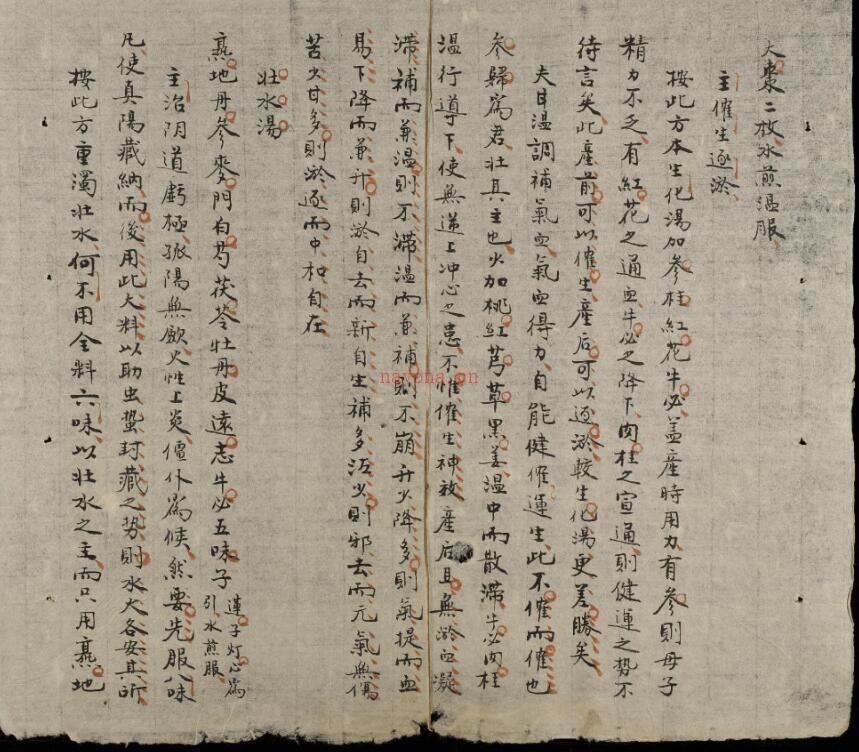 大棗二枚水煎溫服
主催生逐淤
按此方本生化湯加參桂紅花牛必盖產時用力有參則母子
精力不乏有紅花之通血牛必之降下肉桂之宣通則健運之勢不
待言矣此產前可以催生產后可以逐淤較生化湯更差勝矣
夫甘溫調補氣血氣血得力自能健催運生此不催而催也
參歸為君壯其主也火加桃紅芎草黑姜溫中而散滞牛必肉桂
溫行導下使無逆上冲心之患不惟催生神效產后且無淤血凝
滞補而兼溫則不滞溫而兼補則不崩升少降多則氣提而血
易下降而兼升則淤自去而新自生補多泻少則邪去而元氣無傷
苦少甘多則淤逐而中和自在
壯水湯
熟地丹參麥門白芍茯苓牡丹皮遠志牛必五味子 蓮子灯心為引水煎服
主治阴道虧極孤陽無歛火性上炎僵仆為候然要先服八味
凡使真陽藏納而後用此大料以助虫蟄封藏之势則水火各安其所
按此方重濁壯水何不用全料六味以壯水之主而只用熟地
nayona.cn